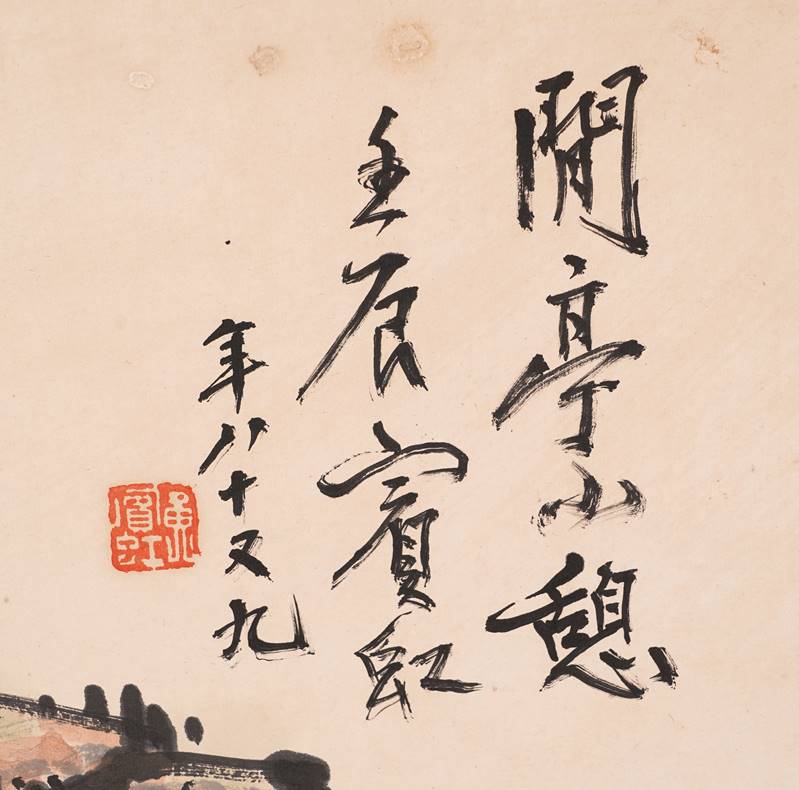 閒亭小憩
壬辰賓虹
年八十又九
黃賓虹